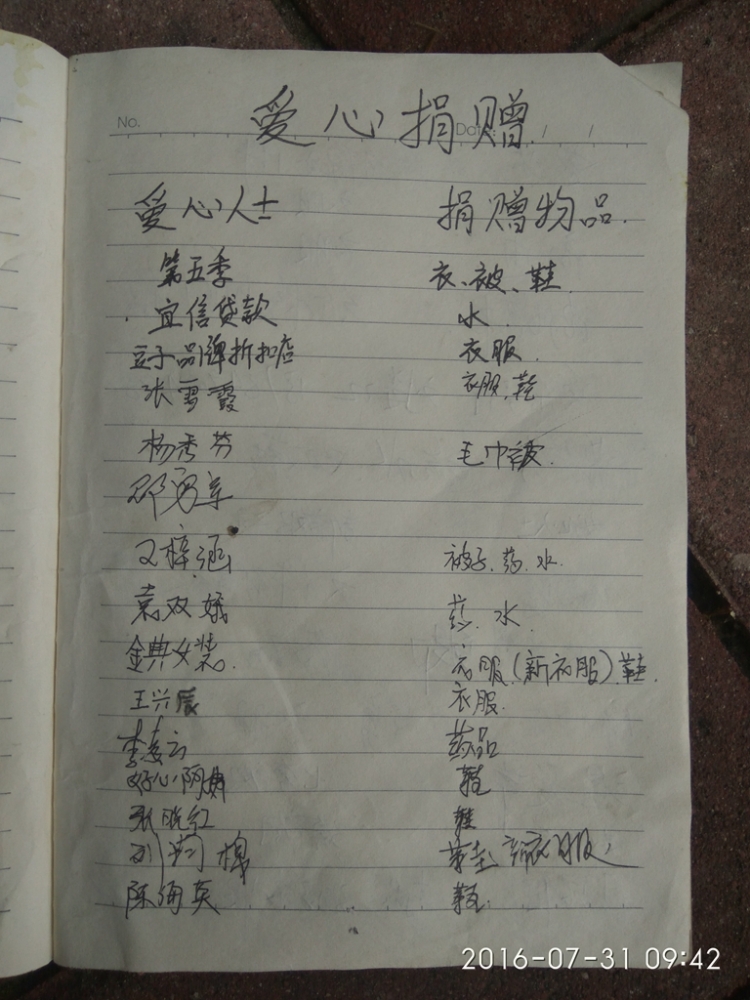 No. Date / /
爱心捐赠
爱心人士 捐赠物品.
第五季 衣、被、鞋
宜信贷款 水.
豆子品牌折扣店 衣服.
张雪霞 衣服,鞋
杨秀芬 毛巾被.
邓勇军
文梓涵 被子,药,水.
袁双娥 药,水.
金典女装. 衣服(新衣服)鞋.
王兴辰 衣服.
李 云 药品
好心阿姨 鞋
张晓红 鞋
刘 梅 鞋 衣服,
陈海英 鞋
2016-07-31 09:42